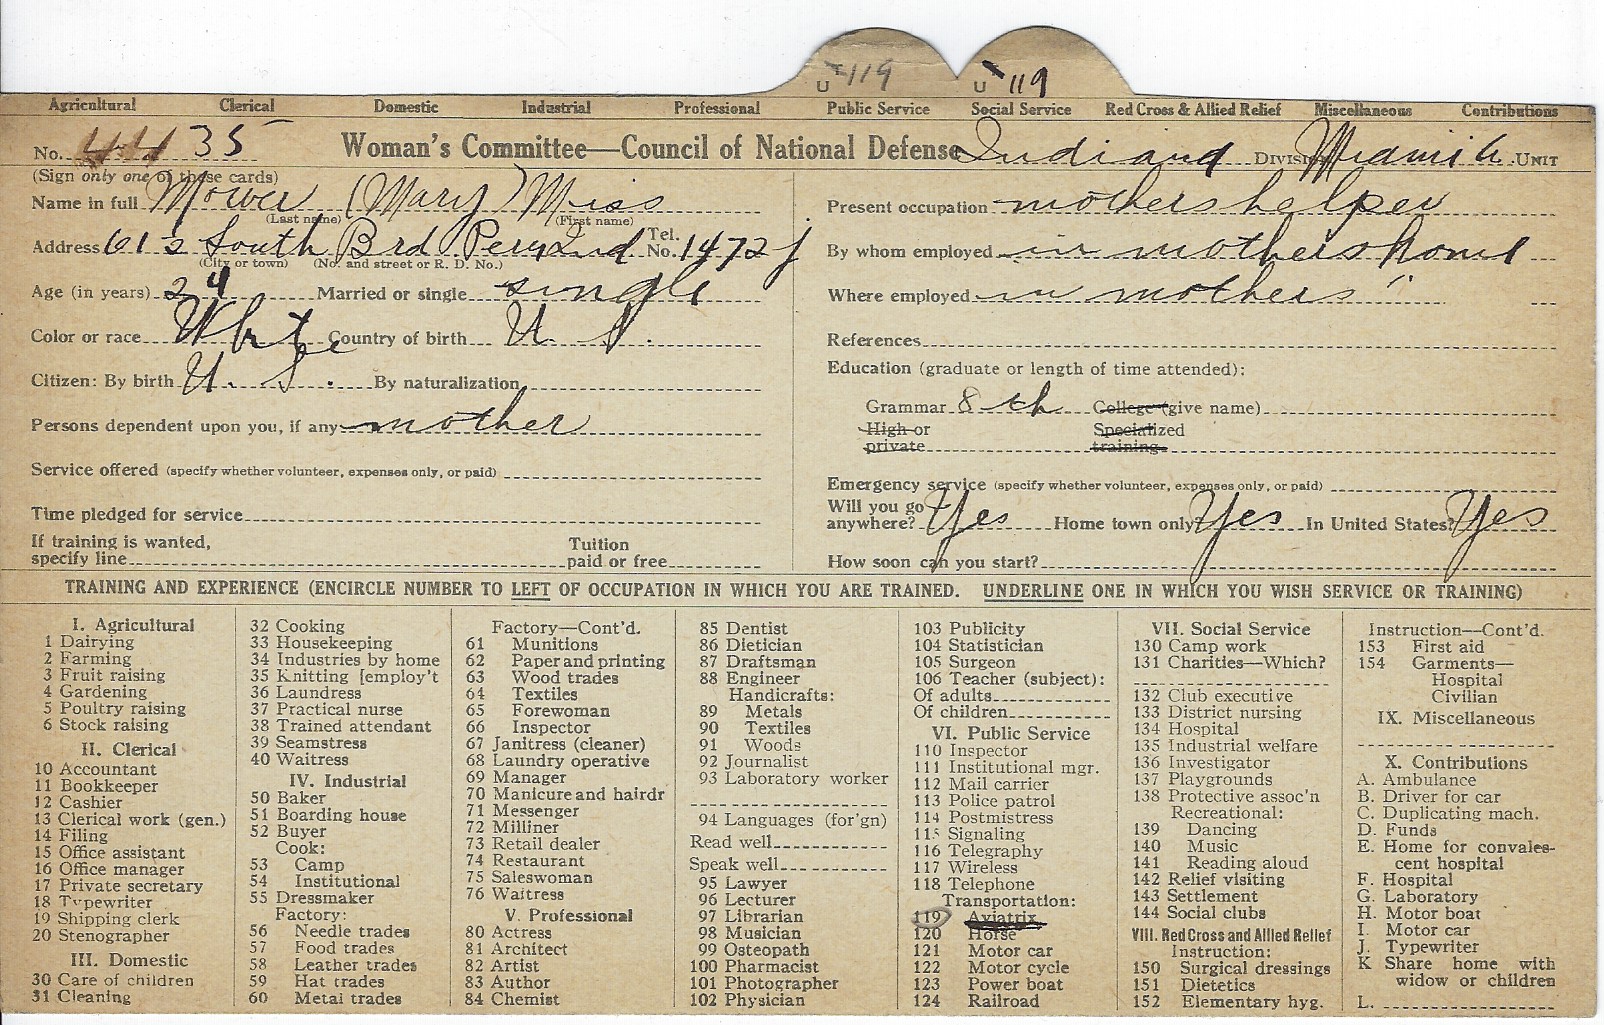 U 119 U 119
Agricultural Clerical Domestic Industrial Professional Public Service Social Service Red Cross & Allied Relief Miscellaneous Contributions
No. 4435 Woman's Committee—Council of National Defense Indiana DIVISION Miami 6 UNIT
(Sign only one of these cards)
Name in full Mower (Mary) Miss
(Last name) (First name)
Address 612 South Brd Peru Ind Tel. No. 1472 J
(City or town) (No. and street or R. D. No.)
Age (in years) 24 Married or single single
Color or race White Country of birth U. S.
Citizen: By birth U. S. By naturalization
Persons dependent upon you, if any mother
Service offered (specify whether volunteer, expenses only, or paid)
Time pledged for service
If training is wanted, specify line Tuition paid or free
Present occupation mothers helper
By whom employed in mothers home
Where employed in mothers "
References
Education (graduate or length of time attended):
Grammar 8th College (give name)
High or private Specialized training
Emergency service (specify whether volunteer, expenses only, or paid)
Will you go anywhere? Yes Home town only? Yes In United States? Yes
How soon can you start?
TRAINING AND EXPERIENCE (ENCIRCLE NUMBER TO LEFT OF OCCUPATION IN WHICH YOU ARE TRAINED. UNDERLINE ONE IN WHICH YOU WISH SERVICE OR TRAINING)
I. Agricultural
1 Dairying
2 Farming
3 Fruit raising
4 Gardening
5 Poultry raising
6 Stock raising
II. Clerical
10 Accountant
11 Bookkeeper
12 Cashier
13 Clerical work (gen.)
14 Filing
15 Office assistant
16 Office manager
17 Private secretary
18 Typewriter
19 Shipping clerk
20 Stenographer
III. Domestic
30 Care of children
31 Cleaning
32 Cooking
33 Housekeeping
34 Industries by home
35 Knitting [employ't
36 Laundress
37 Practical nurse
38 Trained attendant
39 Seamstress
40 Waitress
IV. Industrial
50 Baker
51 Boarding house
52 Buyer
Cook:
53 Camp
54 Institutional
55 Dressmaker
Factory:
56 Needle trades
57 Food trades
58 Leather trades
59 Hat trades
60 Metal trades
Factory—Cont'd.
61 Munitions
62 Paper and printing
63 Wood trades
64 Textiles
65 Forewoman
66 Inspector
67 Janitress (cleaner)
68 Laundry operative
69 Manager
70 Manicure and hairdr
71 Messenger
72 Milliner
73 Retail dealer
74 Restaurant
75 Saleswoman
76 Waitress
V. Professional
80 Actress
81 Architect
82 Artist
83 Author
84 Chemist
85 Dentist
86 Dietician
87 Draftsman
88 Engineer
Handicrafts:
89 Metals
90 Textiles
91 Woods
92 Journalist
93 Laboratory worker
94 Languages (for'gn)
Read well
Speak well
95 Lawyer
96 Lecturer
97 Librarian
98 Musician
99 Osteopath
100 Pharmacist
101 Photographer
102 Physician
103 Publicity
104 Statistician
105 Surgeon
106 Teacher (subject):
Of adults
Of children
VI. Public Service
110 Inspector
111 Institutional mgr.
112 Mail carrier
113 Police patrol
114 Postmistress
115 Signaling
116 Telegraphy
117 Wireless
118 Telephone
Transportation:
119 Aviatrix
120 Horse
121 Motor car
122 Motor cycle
123 Power boat
124 Railroad
VII. Social Service
130 Camp work
131 Charities—Which?
132 Club executive
133 District nursing
134 Hospital
135 Industrial welfare
136 Investigator
137 Playgrounds
138 Protective assoc'n
Recreational:
139 Dancing
140 Music
141 Reading aloud
142 Relief visiting
143 Settlement
144 Social clubs
VIII. Red Cross and Allied Relief
Instruction:
150 Surgical dressings
151 Dietetics
152 Elementary hyg.
Instruction—Cont'd.
153 First aid
154 Garments—
Hospital
Civilian
IX. Miscellaneous
X. Contributions
A. Ambulance
B. Driver for car
C. Duplicating mach.
D. Funds
E. Home for convales-
cent hospital
F. Hospital
G. Laboratory
H. Motor boat
I. Motor car
J. Typewriter
K Share home with
widow or children
L.